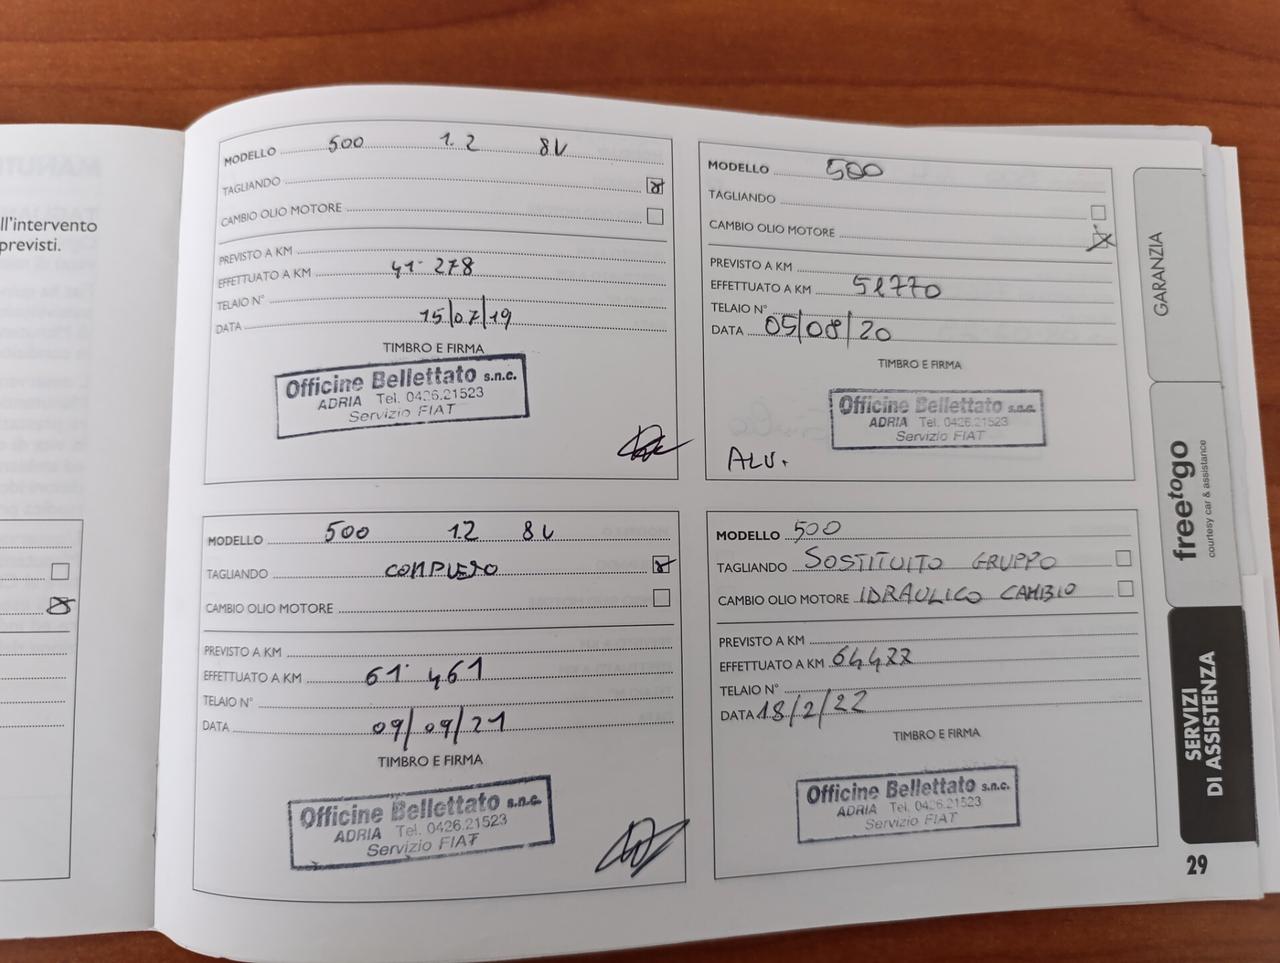 ll'intervento
previsti.
MODELLO 500 1.2 8V
TAGLIANDO
CAMBIO OLIO MOTORE
PREVISTO A KM
EFFETTUATO A KM 41.278
TELAIO N°
DATA 15/07/19
TIMBRO E FIRMA
Officine Bellettato s.n.c.
ADRIA Tel. 0426.21523
Servizio FIAT
MODELLO 500
TAGLIANDO
CAMBIO OLIO MOTORE
PREVISTO A KM
EFFETTUATO A KM 51770
TELAIO N°
DATA 05/08/20
TIMBRO E FIRMA
Officine Bellettato s.n.c.
ADRIA Tel. 0426.21523
Servizio FIAT
MODELLO 500 1.2 8V
TAGLIANDO COMPLETO
CAMBIO OLIO MOTORE
PREVISTO A KM
EFFETTUATO A KM 61.461
TELAIO N°
DATA 09/09/21
TIMBRO E FIRMA
Officine Bellettato s.n.c.
ADRIA Tel. 0426.21523
Servizio FIAT
MODELLO 500
TAGLIANDO SOSTITUITO GRUPPO
CAMBIO OLIO MOTORE IDRAULICO CAMBIO
PREVISTO A KM
EFFETTUATO A KM 64422
TELAIO N°
DATA 18/2/22
TIMBRO E FIRMA
Officine Bellettato s.n.c.
ADRIA Tel. 0426.21523
Servizio FIAT
GARANZIA
freetogo
courtesy car & assistance
SERVIZI
DI ASSISTENZA
29